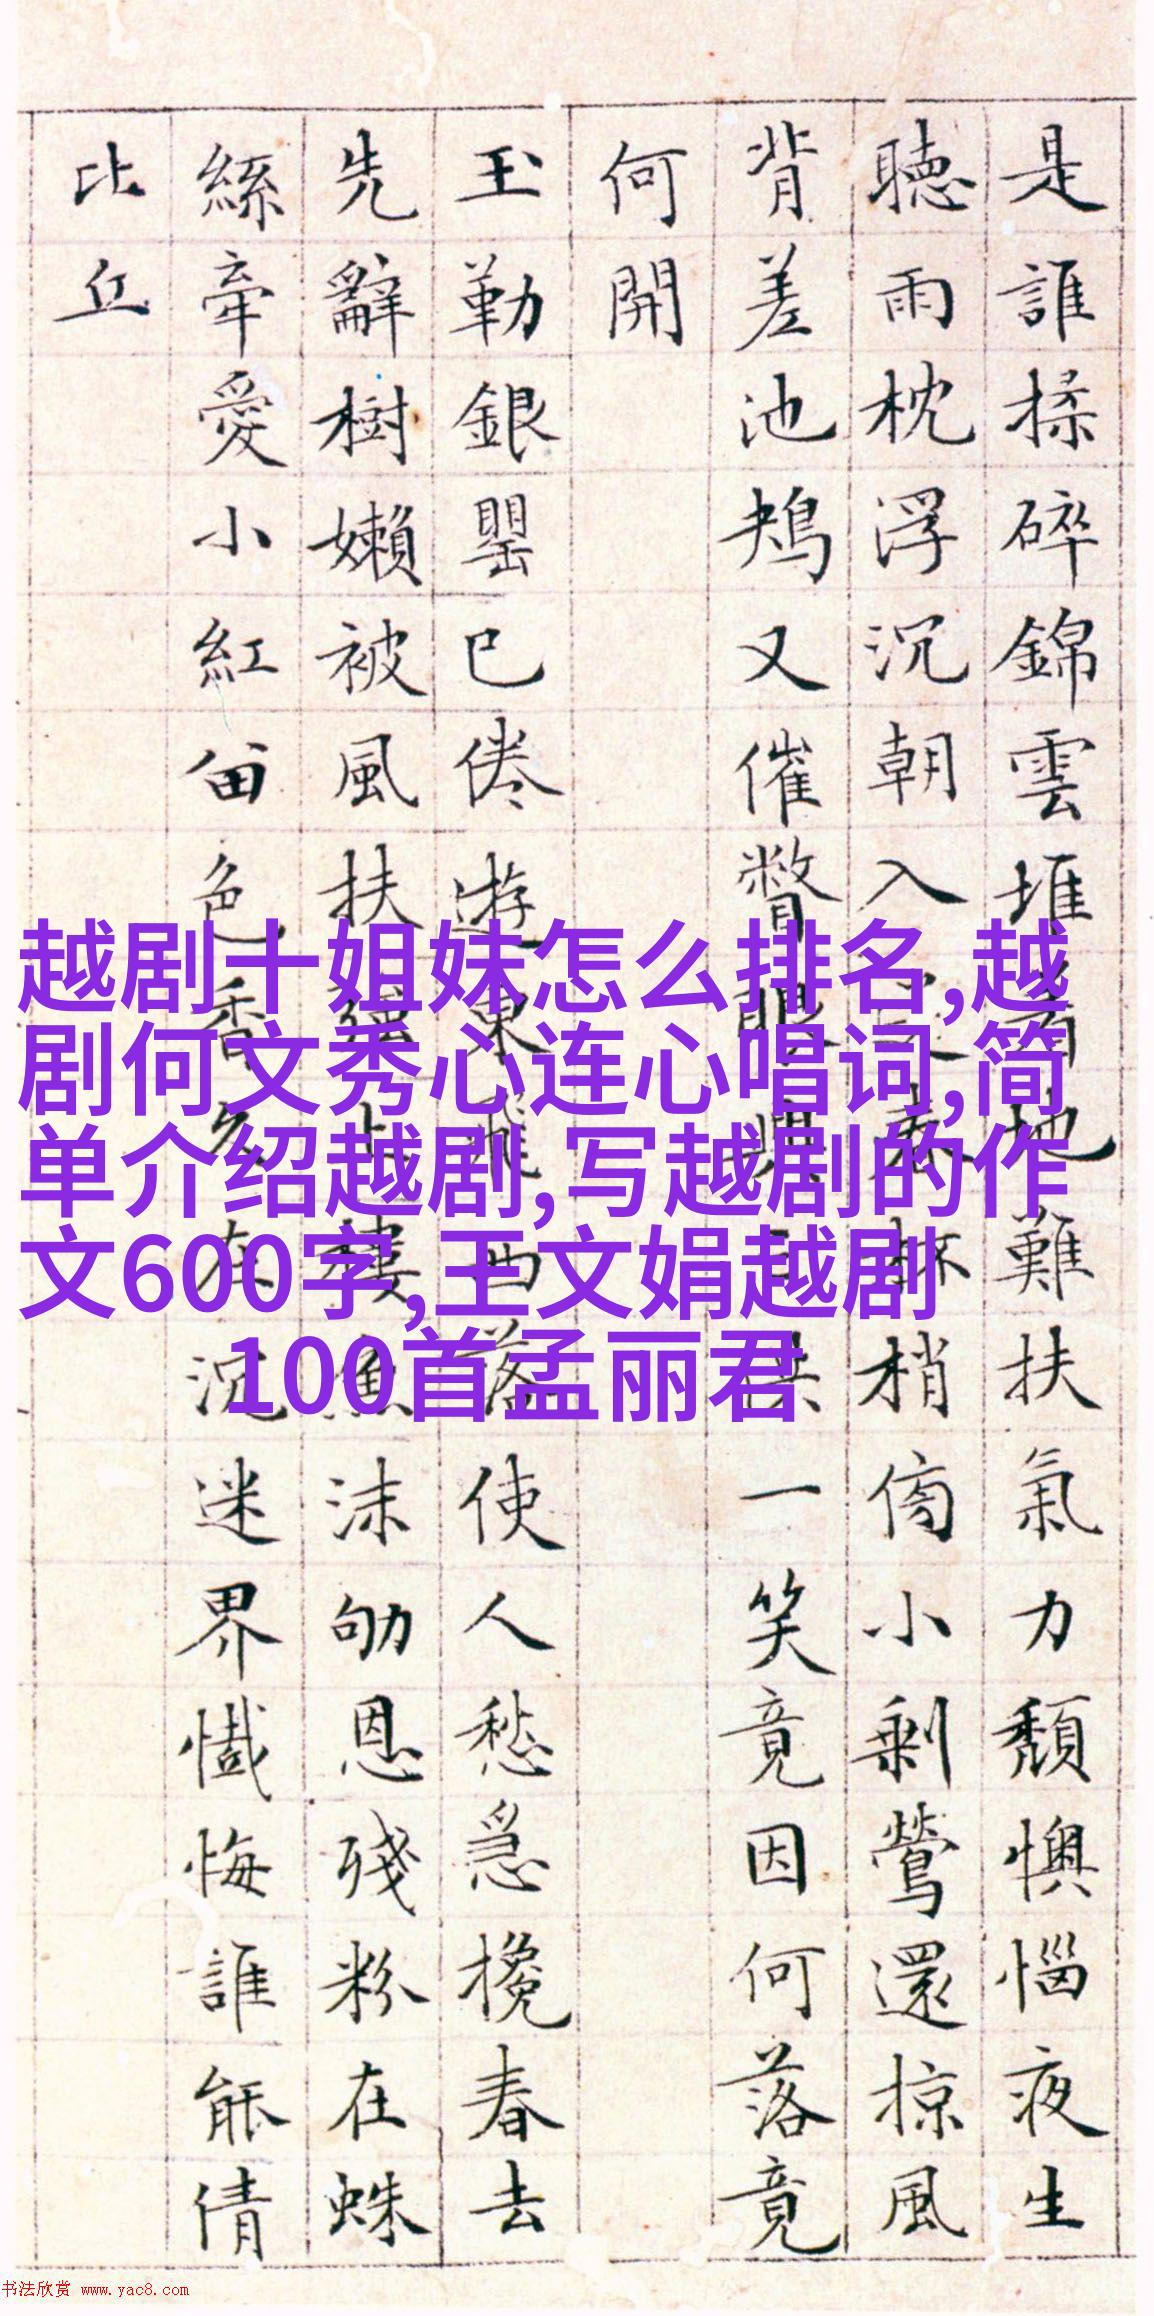 是誰揉碎錦雲堆着地難扶氣力頹懊惱夜生
聴雨枕浮沉朝入梢小剩鶯還掠風
背差池又催瞥眼一笑竟因何落竟
何開
玉勒銀罌已倦遊東飛西落使人愁急攙春去
先辭樹嬾被風扶強上樓魚沫劬恩殘粉在蛛
絲牽愛小紅留色香久在沉迷界懺悔誰能倩
比丘
越剧十姐妹怎么排名,越
剧何文秀心连心唱词,简
单介绍越剧,写越剧的作
文600字,王文娟越剧
100首孟丽君
书法欣赏 www.yac8.com